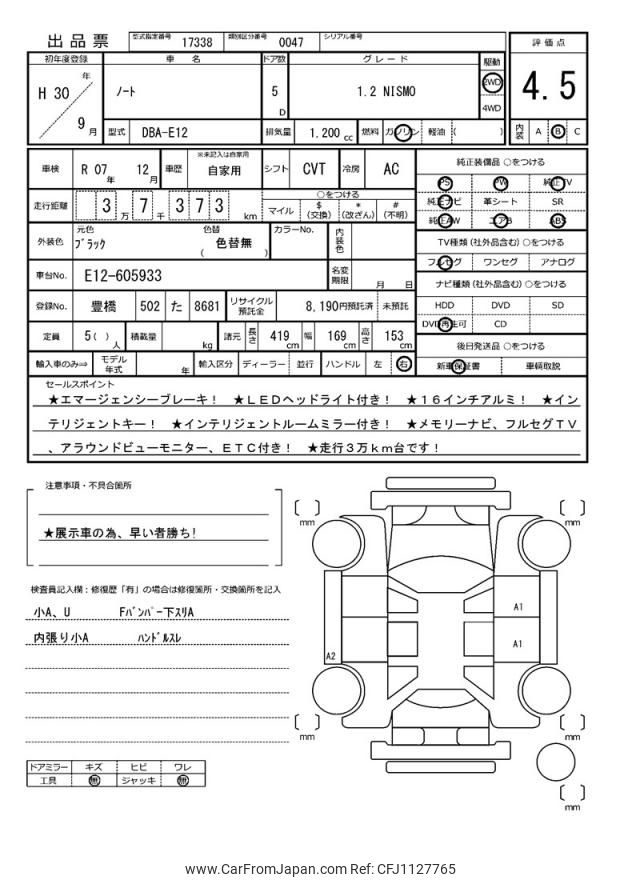 出品票 型式指定番号 17338 類別区分番号 0047 シリアル番号
評価点
4.5
内装 A B C
初年度登録 車名 ドア数 グレード 駆動
H 30 年 9 月 ノート 5 D 1.2 NISMO 2WD 4WD
型式 DBA-E12 排気量 1.200 cc 燃料 ガソリン 軽油 ( )
車検 R 07 年 12 月 車歴 ※未記入は自家用 自家用 シフト CVT 冷房 AC
走行距離 3 万 7 千 3 7 3 km ○をつける
マイル $ (交換) * (改ざん) # (不明)
外装色 元色 ブラック 色替 ( 色替無 ) カラーNo. 内装色
車台No. E12-605933 名変期限 月 日
登録No. 豊橋 502 た 8681 リサイクル預託金 8,190円預託済 未預託
定員 5( ) 人 積載量 kg 諸元 長さ 419 cm 幅 169 cm 高さ 153 cm
輸入車のみ⇒ モデル年式 年 輸入区分 ディーラー 並行 ハンドル 左 右
純正装備品 ○をつける
PS PW 純正TV
純正ナビ 革シート SR
純正AW エアB ABS
TV種類 (社外品含む) ○をつける
フルセグ ワンセグ アナログ
ナビ種類 (社外品含む) ○をつける
HDD DVD SD
DVD再生可 CD
後日発送品 ○をつける
新車保証書 車輌取説
セールスポイント
★エマージェンシーブレーキ! ★LEDヘッドライト付き! ★16インチアルミ! ★イン
テリジェントキー! ★インテリジェントルームミラー付き! ★メモリーナビ、フルセグTV
、アラウンドビューモニター、ETC付き! ★走行3万km台です!
注意事項・不具合箇所
★展示車の為、早い者勝ち!
検査員記入欄:修復歴「有」の場合は修復箇所・交換箇所を記入
小A、U Fバンパー下スリA
内張り小A ハンドルスレ
ドアミラー キズ ヒビ ワレ
工具 無 ジャッキ 無
mm
mm
A1
A1
A2
mm
mm
mm
www.CarFromJapan.com Ref: CFJ1127765